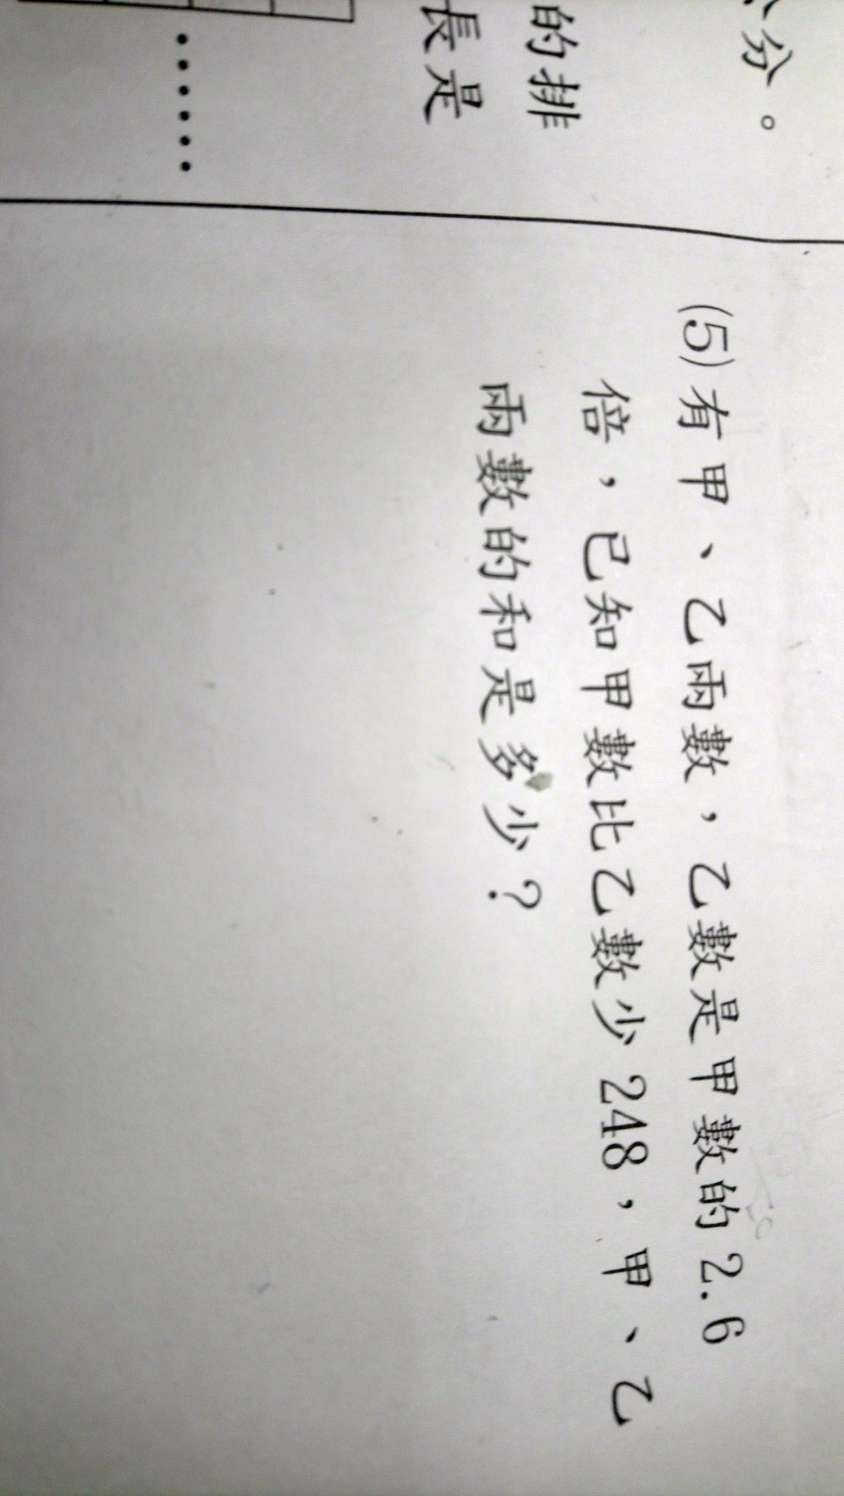 分。
的排
長是
……
(5)有甲、乙兩數，乙數是甲數的2.6
倍，已知甲數比乙數少248，甲、乙
兩數的和是多少？